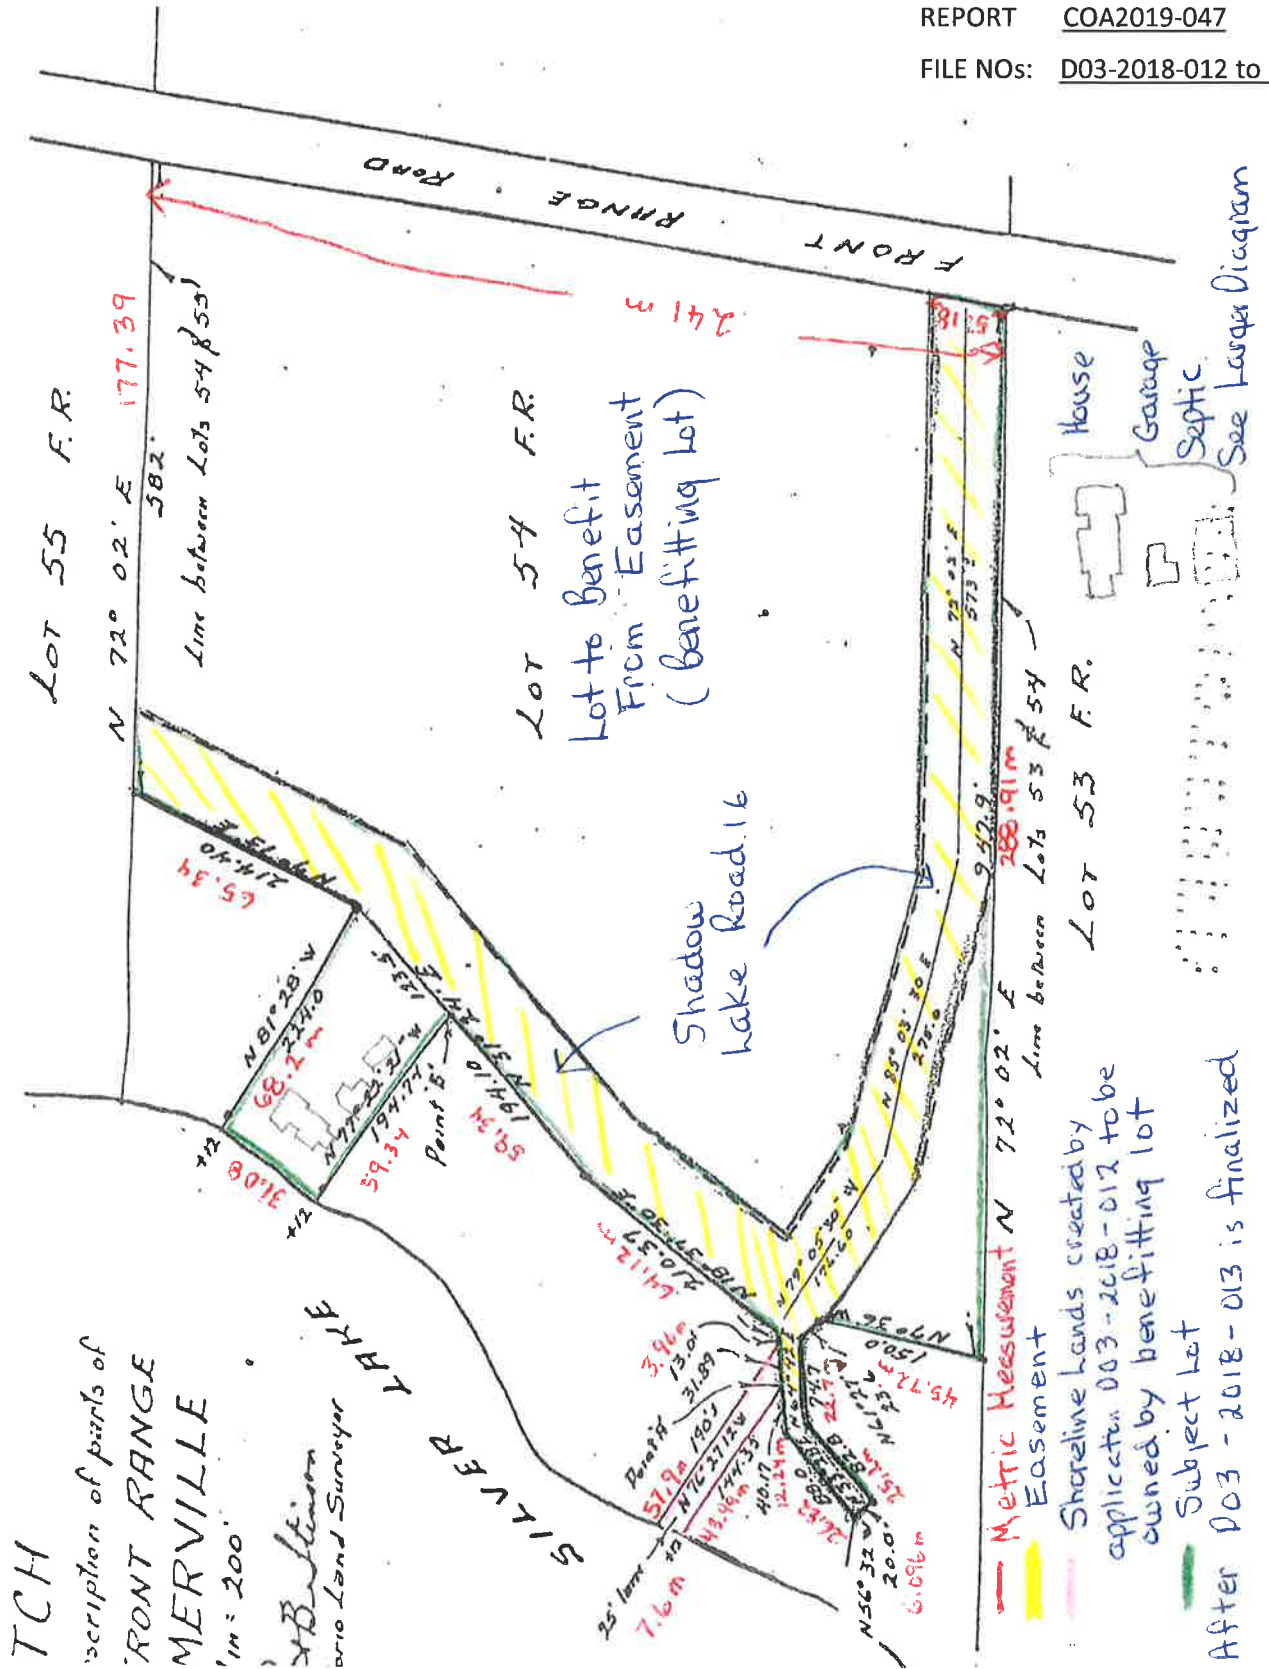 REPORT COA2019-047
FILE NOs: D03-2018-012 to
TCH
scription of parts of
FRONT RANGE
MERVILLE
1in = 200'
ario Land Surveyor
SILVER LAKE
FRONT RANGE ROAD
LOT 55 F.R.
N 72° 02' E 177.39
582'
Line between Lots 54 & 55
241 m
5.18
LOT 54 F.R.
Lot to Benefit
From Easement
(benefitting Lot)
Shadow
Lake Road 16
65.34
214.40
N81°28'W
224.0
68.2 m
123.5'
N 31° 24' E
194.10
59.34
Point 'B'
194.74
59.34
31.08
+12
+12
N18°37'30"E
210.37
64.12 m
N 79° 05' 30" W
176.60
N 85° 03' 30 E
278.0
N 72° 02' E
573.2
942.9'
288.91 m
N 72° 02' E
Line between Lots 53 & 54
LOT 53 F.R.
3.96m
13.0'
31.89
Point 'A'
190'±
57.9m
N 76° 27' 12" W
144.35
43.99m
40.17
12.24m
88.0
26.82
25' lane
7.6 m
N56°32'W
20.0'
6.096m
N7°36'E
150.0
45.72m
House
Garage
Septic
See Larger Diagram
Metric Measurement
Easement
Shoreline Lands created by
application D03-2018-012 to be
owned by benefitting lot
Subject Lot
After D03-2018-013 is finalized